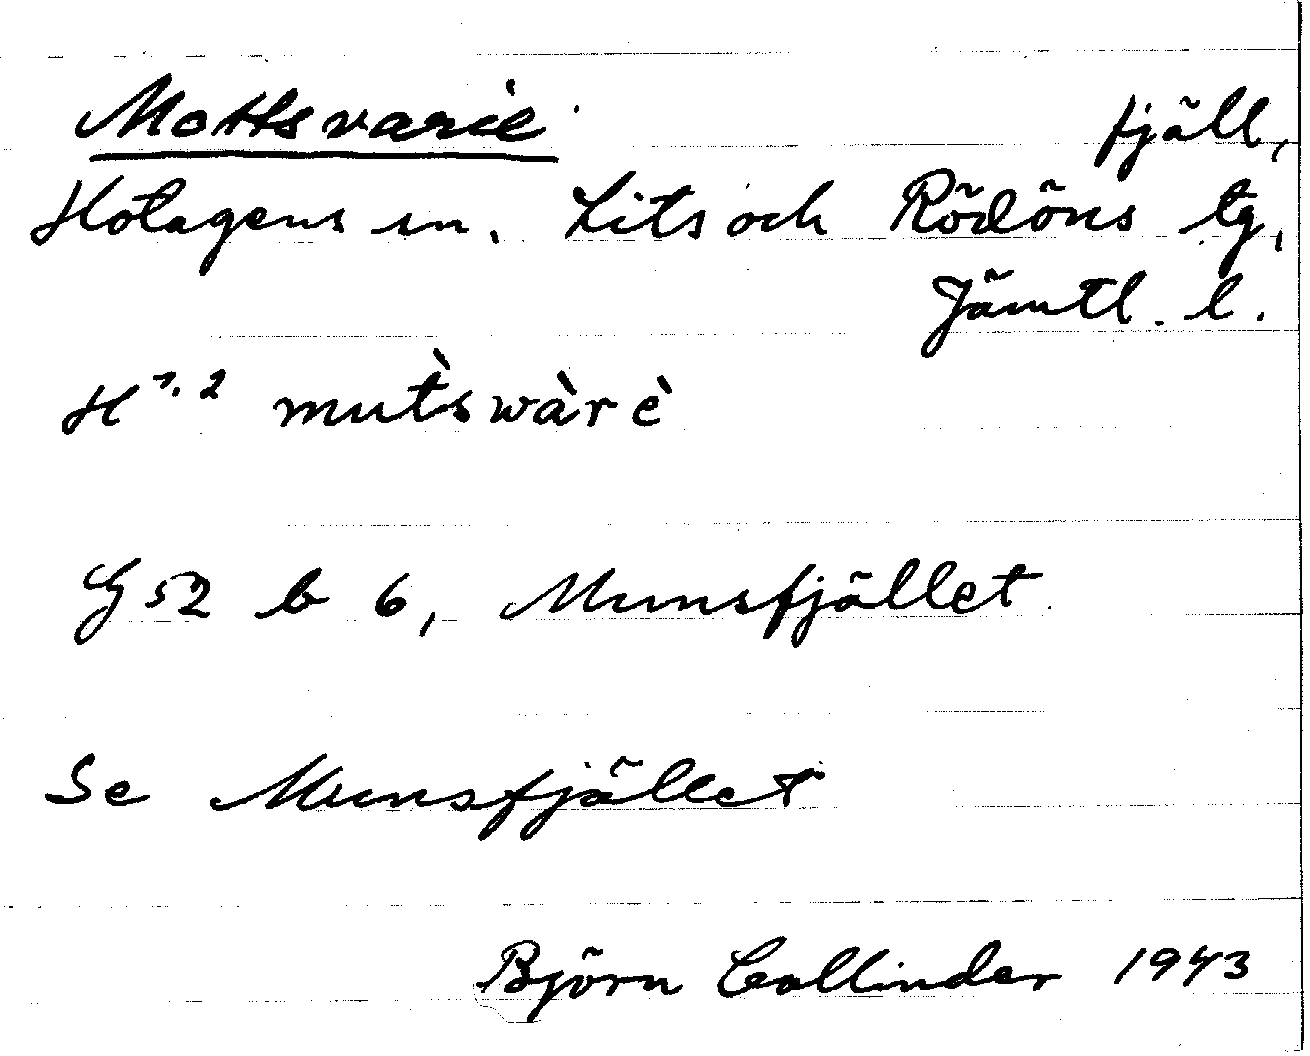 Mottsvarie fjäll,
Hotagens sn. Lits och Rödöns tg,
Jämtl. l.
H 1. 2 mutˋswàrè
G 52 b 6, Munsfjället
Se Munsfjället
Björn Collinder 1943